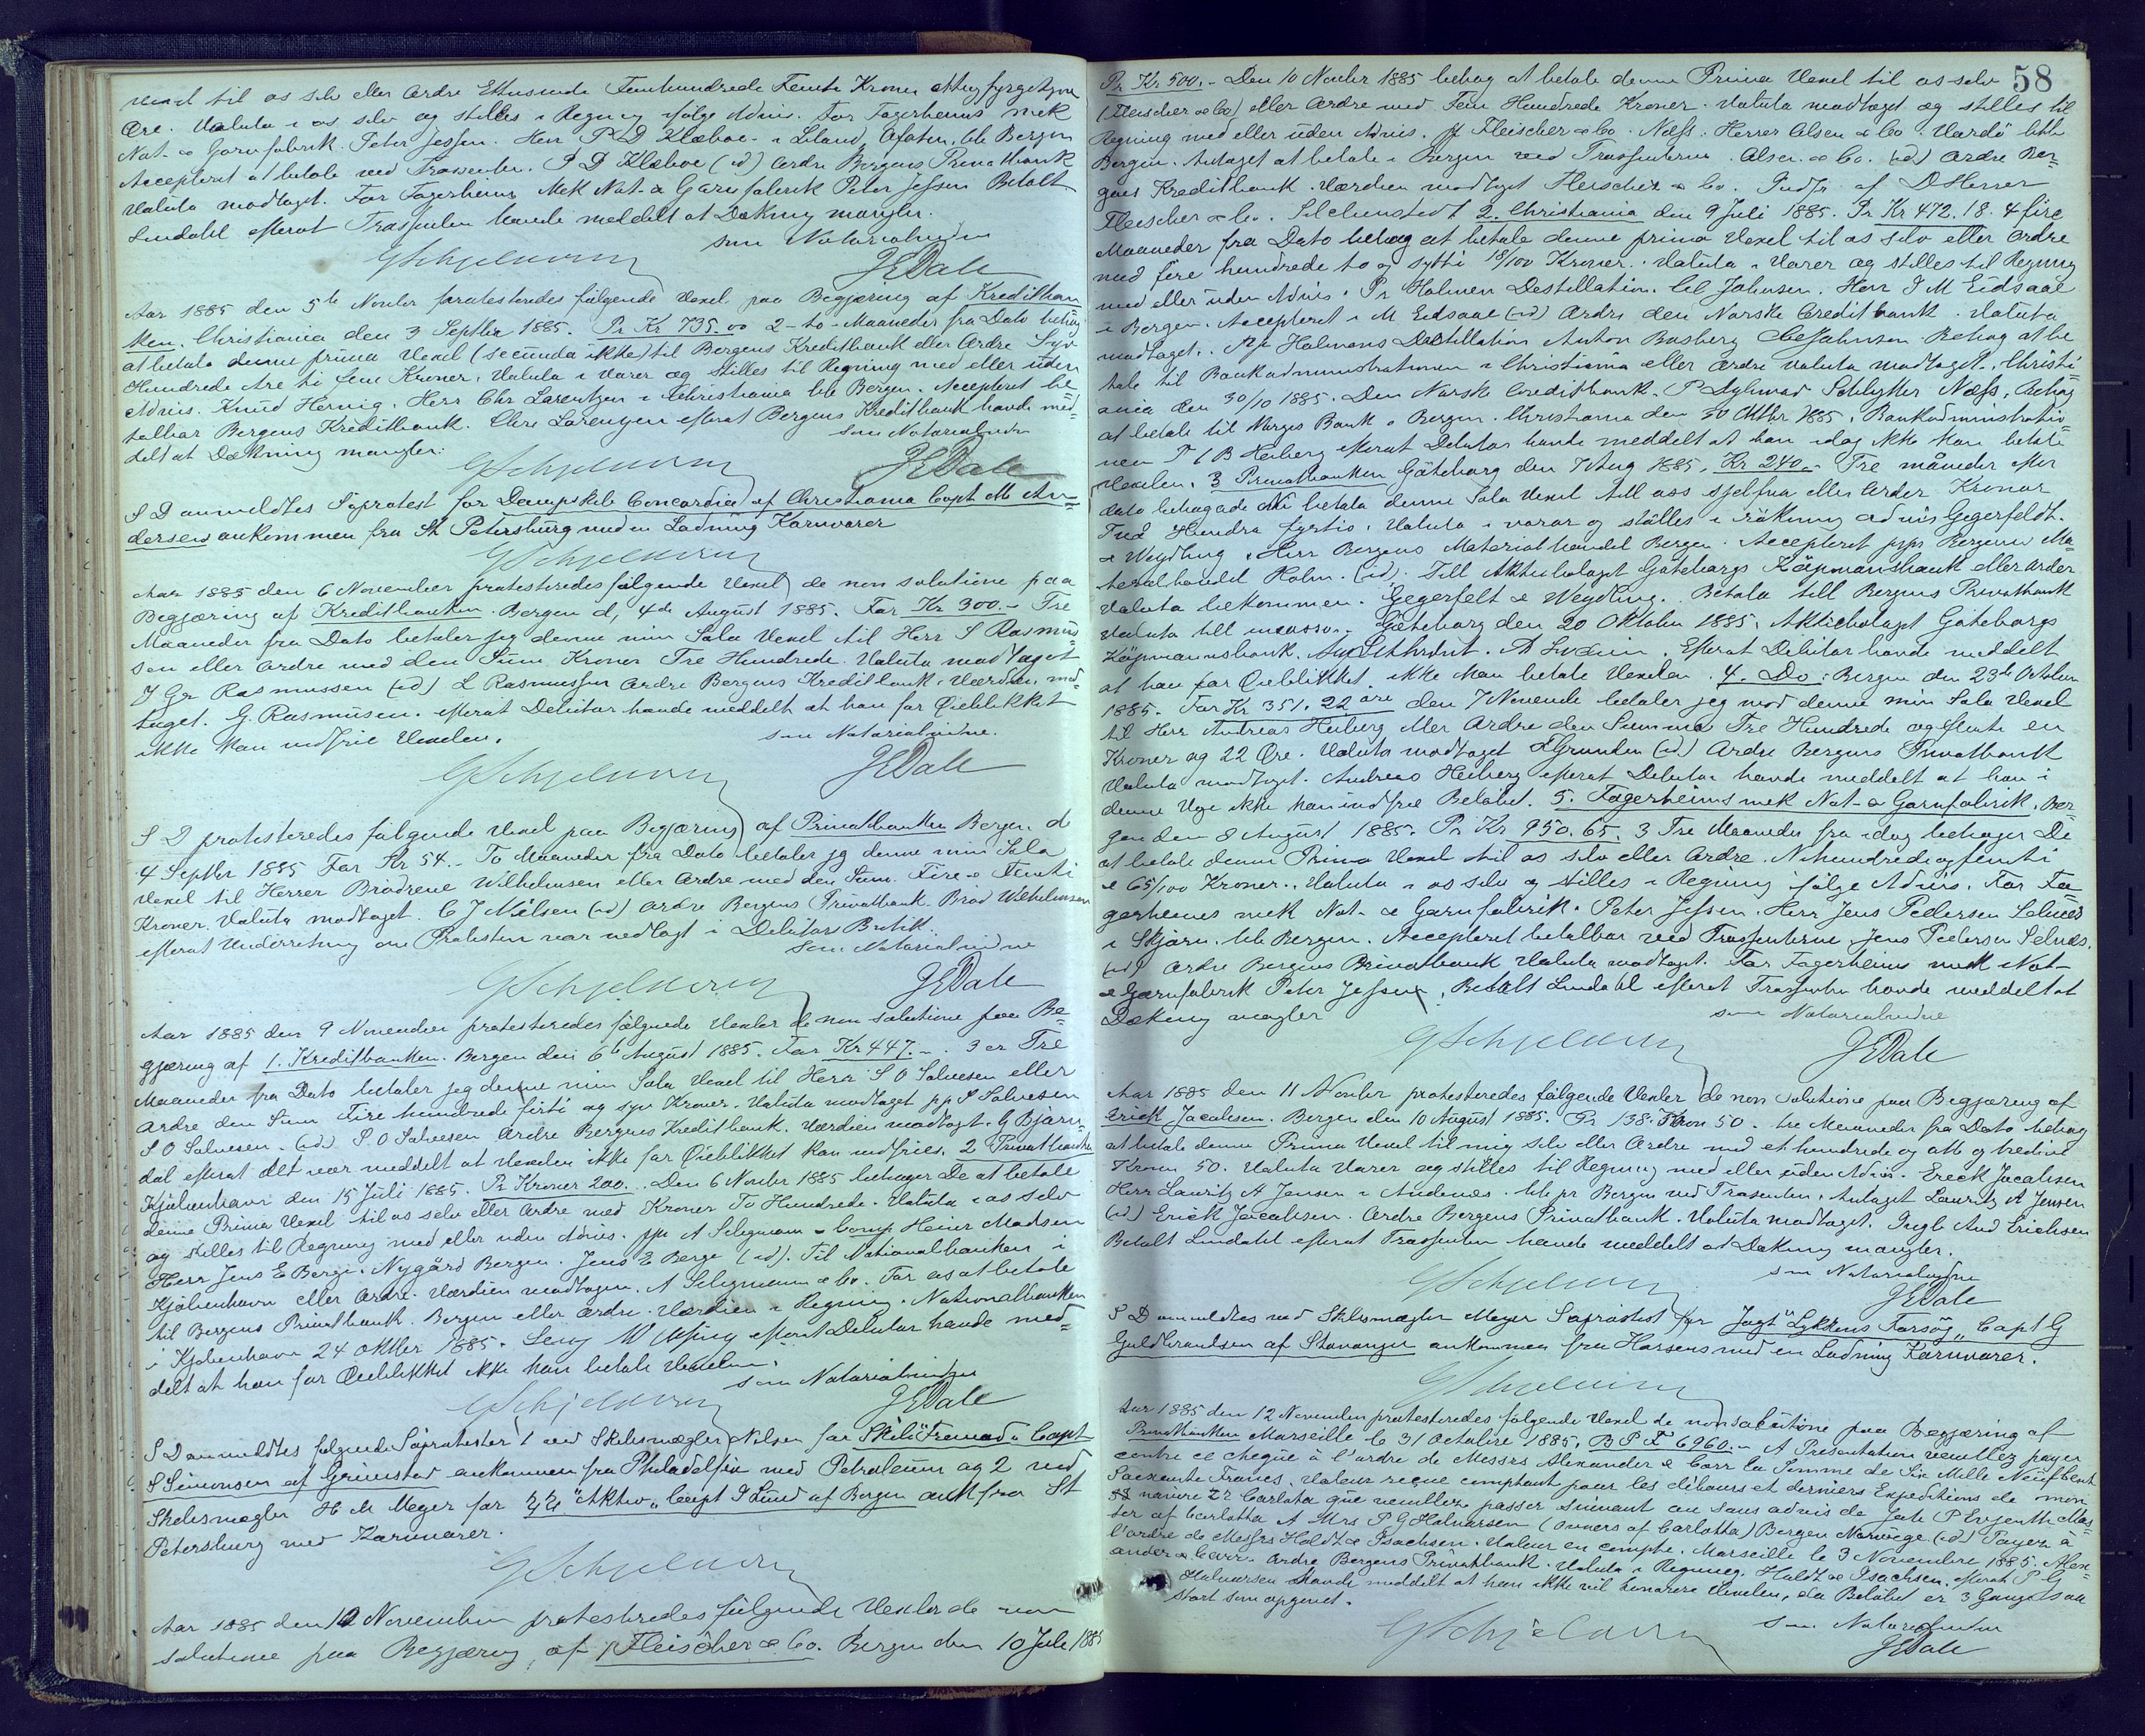 Vexel til os selv eller Ordre Ettusinde Femhundrede Femti Kroner otteogfyrgetyve
Øre. Valuta i os selv og stilles i Regning ifølge Advis. For Fagerheims mek
Not- & Garnfabrik. Peter Jessen. Herr P D Klæboe i Bergen
Accepteret at betale ved Trassenten. P D Klæboe (id) Ordre Bergens Privatbank
Valuta modtaget. For Fagerheims Mek Not- & Garnfabrik Peter Jessen Betalt
Lindahl efterat Trassenten havde meddelt at Dækning mangler.
som Notarialvidne
G Schjelderup
J E Dale
Aar 1885 den 5te Novbr protesteredes følgende Vexel paa Begjæring af Kreditban
ken. Christiania den 3 Septbr 1885. Pr Kr 735.00 2-to-Maaneder fra Dato behag
at betale denne prima Vexel (secunda ikke) til Bergens Kreditbank eller Ordre Syv
Hundrede tre ti fem Kroner, Valuta i Varer og stilles til Regning med eller uden
Advis. Knud Hernig. Herr Chr Lorentzen i Christiania Bergen. Accepteret be
talbar Bergens Kreditbank. Chr Lorentzen efterat Bergens Kreditbank havde med=
delt at Dækning mangler.
som Notarialvidne
G Schjelderup
J E Dale
S D anmeldtes Søprotest for Dampskib Concordia af Christiania Capt M An=
dersen ankommen fra St Petersburg med en Ladning Kornvarer
G Schjelderup
Aar 1885 den 6 November protesteredes følgende Vexel de non solutione paa
Begjæring af Kreditbanken. Bergen d, 4de August 1885. For Kr 300.- Tre
Maaneder fra Dato betaler jeg denne min Sola Vexel til Herr S Rasmus=
sen eller Ordre med den Sum Kroner Tre Hundrede. Valuta modtaget
J Gr Rasmussen (id) L Rasmussen Ordre Bergens Kreditbank. Værdien mod=
taget. G. Rasmusen. efterat Debitor havde meddelt at han for Øieblikket
ikke kan indfrie Vexelen.
som Notarialvidne.
G Schjelderup
J E Dale
S D protesteredes følgende Vexel paa Begjæring af Privatbanken Bergen d
4 Septbr 1885 For Kr 54.- To Maaneder fra Dato betaler jg denne min Sola
Vexel til Herrer Brødrene Wilhelmsen eller Ordre med den Sum. Fire & Femti
Kroner. Valuta modtaget. C J Nilsen (id) Ordre Bergens Privatbank. Brød Wilhelmsen
efterat Underretning om Protesten var nedlagt i Debitors Butik.
som Notarialvidne
G Schjelderup
J E Dale
Aar 1885 den 9 November protesteredes følgende Vexler de non solutione paa Be=
gjæring af 1. Kreditbanken. Bergen den 6te August 1885. For Kr 447.- 3 er Tre
Maaneder fra Dato betaler jeg denne min Sola Vexel til Herr S O Salvesen eller
Ordre den Sum Fire hundrede firti og syv Kroner. Valuta modtaget pp S Salvesen
S O Salvesen. (id) S O Salvesen Ordre Bergens Kreditbank. Værdien modtaget. G Bjørn=
dal efterat det var meddelt at Vexelen ikke for Øieblikket kan indfries. 2 Privatbanken
Kjøbenhavn den 15 Juli 1885. Pr Kroner 200.. Den 6 Novbr 1885 behager De at betale
denne Prima Vexel til os selv eller Ordre med Kroner To Hundrede. Valuta i os selv
og stilles til Regning med eller uden Advis. ppa A Seligmann & Comp Heinr Madsen
Herr Jens E Berge. Nygård Bergen. Jens E Berge (id). Til Nationalbanken i
Kjøbenhavn eller Ordre. Værdien modtagen. A Seligmann & Co. For os at betale
til Bergens Privatbank. Bergen eller Ordre. Værdien i Regning. Nationalbanken
i Kjøbenhavn 24 Oktbr 1885. Levy efterat Debitor havde med=
delt at han for Øieblikket ikke kan betale Vexelen.
som Notarialvidne
G Schjelderup
J E Dale
S D anmeldtes følgende Søprotester 1 ved Skibsmægler Nilsen for Skib "Fremad" Capt
S Simonsen af Grimstad ankommen fra Philadelfia med Petroleum og 2 ved
Skibsmægler H M Meyer for "Aktiv" Capt J Lund af Bergen ank fra St
Petersburg med Kornvarer.
G Schjelderup
Aar 1885 den 10 November protesteredes følgende Vexler de non
solutione paa Begjæring af 1 Fleischer & Co. Bergen den 10 Juli 1885
58
Pr Kr 500.- Den 10 Novbr 1885 behag at betale denne Prima Vexel til os selv
(Fleischer & Co) eller Ordre med Fem Hundrede Kroner. Valuta modtaget og stilles til
Regning med eller uden Advis. Fleischer & Co. Næss. Herrer Olsen & Co. Vardö
Bergen. Antaget at betale i Bergen ved Trassenterne. Olsen & Co. (id) Ordre Ber=
gens Kreditbank. Værdien modtaget Fleischer & Co. Indfr. af D Herrer
Fleischer & Co. 2. Christiania den 9 Juli 1885. Pr Kr 472.18. 4 fire
Maaneder fra Dato behag at betale denne prima Vexel til os selv eller Ordre
med fire hundrede to og sytti 18/100 Kroner. Valuta i Varer og stilles til Regning
med eller uden Advis. Pr Holmen Destillation. Johnsen. Herr J M Eidsaae
i Bergen. Accepteret J M Eidsaae (id) Ordre den Norske Creditbank. Valuta
modtaget. Holmens Destillation Anton Busberg Johnson. Behag at be
tale til Bankadministrationen i Christiania eller Ordre Valuta modtaget. Christi=
ania den 30/10 1885. Den Norske Creditbank. P Schlytter Næss, Behag
at betale til Norges Bank i Bergen. Christiania den 30 Oktbr 1885. Bankadministratio=
nen Heiberg efterat Debitor havde meddelt at han idag ikke kan betale
Vexelen. 3 Privatbanken Göteborg den 7 Aug 1885. Kr 240.- Tre måneder efter
dato behagade Ni betala denne Sola Vexel till oss sjelfva eller Order Kronor
Två Hundra fyrtio. Valuta i varor og ställes i räkning advis Gegerfeldt
& Weydling. Herr Bergens Materialhandel Bergen. Accepteret Bergens Ma=
terialhandel Holm. (id). Till Aktiebolaget Göteborgs Köpmansbank eller Order
Valuta bekommen. Gegerfelt & Weydling. Betala till Bergens Privatbank
Valuta till incasso. Göteborg den 20 Oktober 1885. Aktiebolaget Göteborgs
Köpmannsbank. Efterat Debitor havde meddelt
at han for Øieblikket ikke kan betale Vexelen. 4. Do: Bergen den 23de October
1885. For Kr 351.22 øre den 7 November betaler jeg mod denne min Sola Vexel
til Herr Andreas Heiberg eller Ordre den Summa Tre Hundrede og femti en
Kroner og 22 Øre. Valuta modtaget (id) Ordre Bergens Privatbank
Valuta modtaget. Andreas Heiberg efterat Debitor havde meddelt at han i
denne Uge ikke kan indfrie Beløbet. 5. Fagerheims mek Not- & Garnfabrik. Ber=
gen den 8 August 1885. Pr Kr 950.65. 3 Tre Maaneder fra idag behager De
at betale denne Prima Vexel til os selv eller Ordre. Nihundrede og femti
& 65/100 Kroner. Valuta i os selv og stilles i Regning ifølge Advis. For Fa=
gerheims mek Not- & Garnfabrik. Peter Jessen. Herr Jens Pedersen Selnes
i Skjærn. Bergen. Accepteret betalbar ved Trassenterne Jens Pedersen Selnæs.
(id) Ordre Bergens Privatbank Valuta modtaget. For Fagerheims mek Not-
& Garnfabrik Peter Jessen. Betalt Lindahl efterat Trassenten havde meddelt at
Dækning mangler
som Notarialvidne
G Schjelderup
J E Dale
Aar 1885 den 11 Novbr protesteredes følgende Vexler de non solutione paa Begjæring af
Erick Jacobsen. Bergen den 10 August 1885. Pr 138 Kron 50. tre Maaneder fra Dato behag
at betale denne Prima Vexel til mig selv eller Ordre med et hundrede og otte og tredive
Kroner 50. Valuta Varer og stilles til Regning med eller uden Advis. Erick Jacobsen
Herr Lauritz A Jensen i Andenæs. pr Bergen ved Trasenten. Antaget Lauritz A Jensen
(id) Erick Jacobsen. Ordre Bergens Privatbank. Valuta modtaget. And Erichsen
Betalt Lindahl efterat Trassenten havde meddelt at Dækning mangler.
som Notarialvidne
G Schjelderup
J E Dale
S D anmeldtes ved Skibsmægler Meyer Søprotest for Jagt "Lykkens Forsøg" Capt G
Guldbrandsen af Stavanger ankommen fra Horsens med en Ladning Kornvarer.
G Schjelderup
Aar 1885 den 12 November protesteredes følgende Vexel de non solutione paa Begjæring af
Privatbanken Marseille le 31 Octobre 1885. B P F 6960.- A Presentation veuillez payer
contre ce chèque à l'ordre de Messrs Alexander & Carr la Somme de Six Mille Neuf Cent
Soixante Francs, Valeur reçue comptant pour les débours et derniers Expeditions de mon
navire Carlota que veuillez passer suivant ou sans advis de Mas=
ter of Carlotta A Mrs P G Halvorsen (Owners of Carlotta) Bergen Norvège (id) Payez à
l'ordre de Messrs Holdt & Isachsen. Valeur en compte. Marseille le 3 Novembre 1885. Alex=
ander & Carr. Ordre Bergens Privatbank. Valuta i Regning. Holdt & Isachsen. efterat P G
Halvorsen havde meddelt at han ikke vil honorere Vexelen, da Beløbet er 3 Gange saa
stort som opgivet.
som Notarialvidne
G Schjelderup
J E Dale